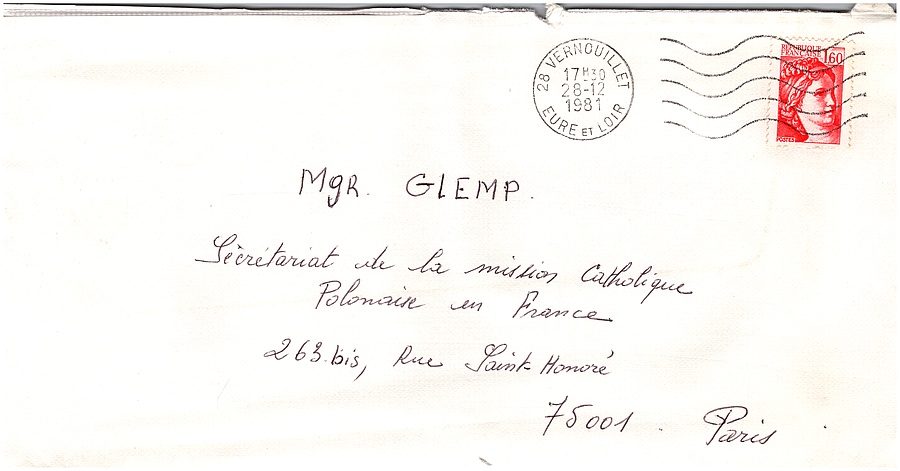 28 VERNOUILLET
17H30
28-12
1981
EURE ET LOIR
REPUBLIQUE
FRANCAISE 1,60
POSTES
MgR. GLEMP.
Sécrétariat de la mission Catholique
Polonaise en France
263.bis, Rue Saint-Honoré
75001. Paris